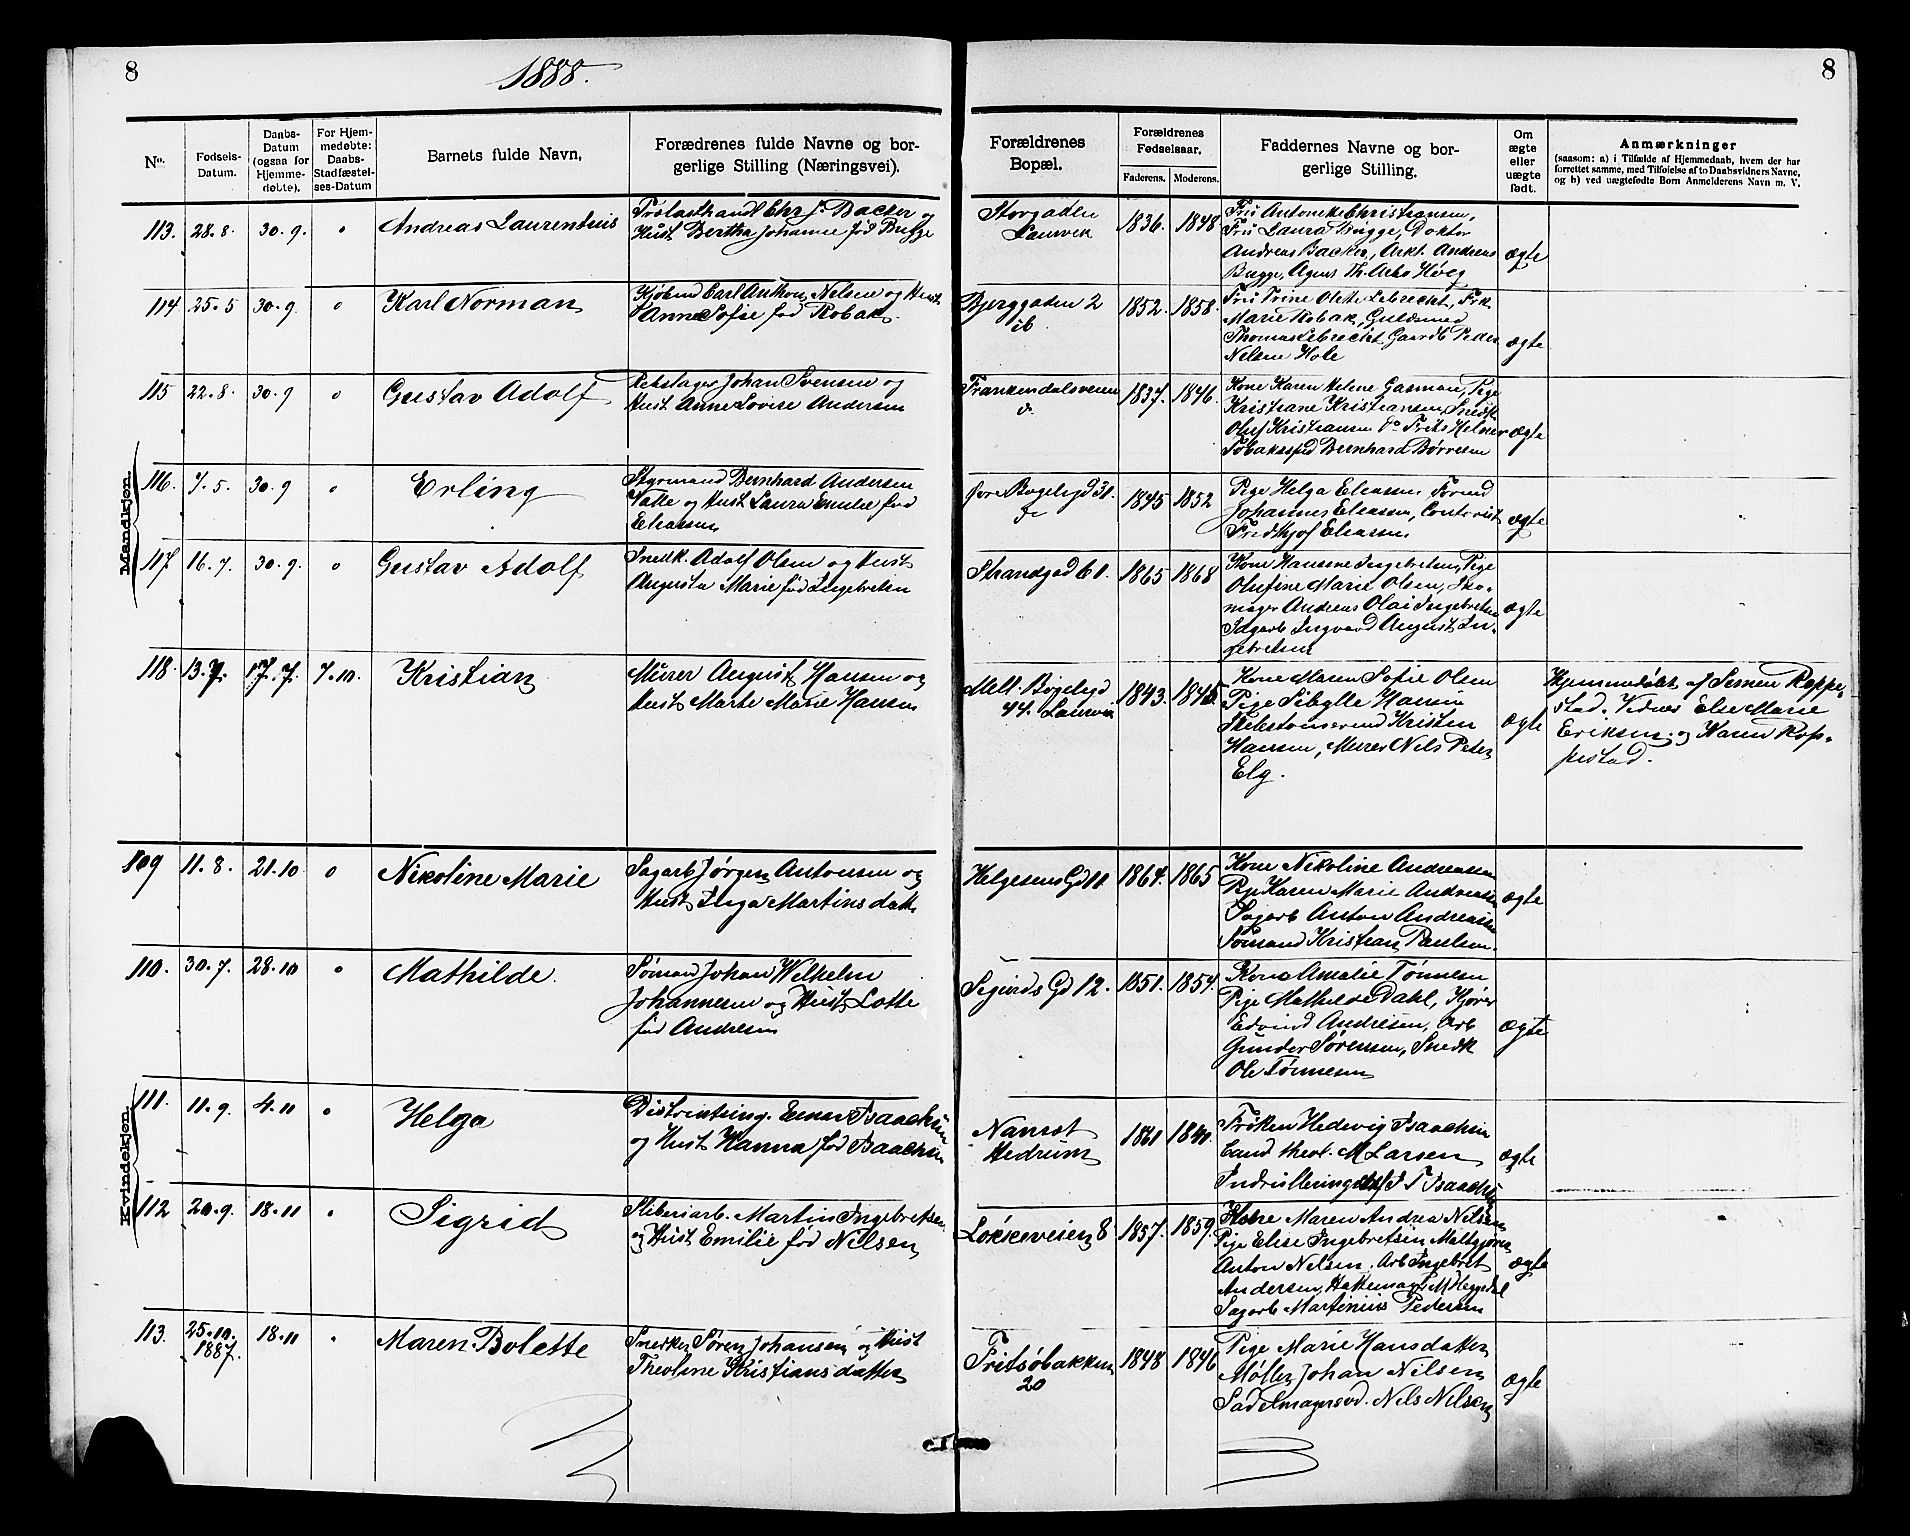 8
1888.
8
No.
Fødsels-
Datum.
Daabs-
Datum
(ogsaa for
Hjemme-
døbte).
For Hjem-
medøbte:
Daabs-
Stadfæstel-
ses-Datum
Barnets fulde Navn.
Forædrenes fulde Navne og bor-
gerlige Stilling (Næringsvei).
Forældrenes
Bopæl.
Forældrenes
Fødselsaar.
Faderens.
Moderens.
Faddernes Navne og bor-
gerlige Stilling.
Om
ægte
eller
uægte
født.
Anmærkninger
(saasom: a) i Tilfælde af Hjemmedaab, hvem der har
forrettet samme, med Tilføielse af to Daabsvidners Navne,
og b) ved uægtefødte Børn Anmelderens Navn m. V.
Mandkjøn.
113. 28.8. 30.9. Andreas Laurentius
Chr J. Backer og
Hust Bertha Johanne fød Bugge
Storgaden
Laurvik
1836. 1848
Fru Christiansen,
Fru Laura Bugge, Doktor
Andreas Backer, Arkt. Andreas
Bugge, Agent Th. Arbo Høeg
ægte
114 25.5 30.9. Karl Norman
Kjøbmd Carl Anthon Nielsen og Hust
Anne Sofie fød Robak.
Bjerggaden 2
ib
1852. 1858.
Fru Trine Olette Lebrecht, Frk
Marie Robak, Guldsmed
Thomas Lebrecht, Gaardb Peder
Nelsen Hole
ægte
115 22.8. 30.9 Gustav Adolf
Rebslager Johan Svensen og
Hust Anne Lovise Andersen
Frankendalsveien
1837. 1846.
Kone Karen Helene Gasman, Pige
Kristiane Kristiansen, Snedk
Oluf Kristiansen do Frits Helner
Bernhard Børresen
ægte
116. 7.5. 30.9 Erling
Styrmand Bernhard Andersen
Valle og Hust Laura Emilie fød
Eliassen
31.
1845 1852
Pige Helga Eliassen,
Johannes Eliassen, Contorist
Fredthjof Eliassen
ægte
117. 16.7. 30.9. Gustav Adolf
Snedk. Adolf Olsen og Hust
Augusta Marie fød Ingebretsen
Strandgad 61.
1865 1868
Kone Hansine Ingebretsen, Pige
Olufine Marie Olsen, Sko-
mager Andreas Olai Ingebretsen
Ingvard August In-
gebretsen
ægte
118. 13.7. 17.7. 7.10. Kristian
Murer August Hansen og
Hust Marte Marie Hansen
Mell. Bøgelgd
44. Laurvik
1843. 1845
Kone Maren Sofie Olsen
Pige Sibylle Hansen
Kristen
Hansen, Murer Nils Peter
Elg.
ægte
Hjemmedøbt af Semen Roppe-
stad. Vidner Else Marie
Eriksen og Karen Rop-
pestad.
Kvindekjøn.
109 11.8. 21.10 Nikoline Marie
Sagarb Jørgen Antonsen og
Hust Inga Martinsdatt
Helgesens Gd 11.
1864. 1865
Kone Nikoline Andreassen
Pige Karen Marie Andreassen
Sagarb Anton Andreassen
Sømand Kristian Paulsen.
ægte
110. 30.7. 28.10 Mathilde.
Sømand Johan Wilhelm
Johannesen og Hust Lotte
fød Andresen
Sigurds Gd 12.
1851. 1854.
Kone Amalie Tønnesen
Pige Mathilde Dahl, Kjører
Edvind Andresen, Arb
Gunder Sørensen, Snedk
Ole Tønnesen
ægte
111. 11.9. 4.11 Helga
Distriktsing. Einar Isaachsen
og Hust Hanna fød Isaachsen
Nanset
Hedrum
Frøken Hedevig Isaachsen
Cand theol. M Larsen
Isaachsen
ægte
112 20.9. 18.11 Sigrid
Sliberiarb. Martin Ingebretsen
og Hust Emilie fød Nilsen
Løkkeveien 8
1857. 1859
Kone Maren Andrea Nilsen
Pige Elise Ingebretsen, Maltgjører
Anton Nelsen, Arb Ingebret
Andersen, Hattemager M Heggedal
Sagarb Martinius Pedersen
ægte
113. 25.10. 1887. 18.11 Maren Bolette
Snedker Søren Johansen og Hust
Theoline Kristiansdatter
Fritsøbakken
20
1848 1846
Pige Marie Hansdatter
Møller Johan Nilsen
Sadelmagersvd. Nils Nilsen
ægte